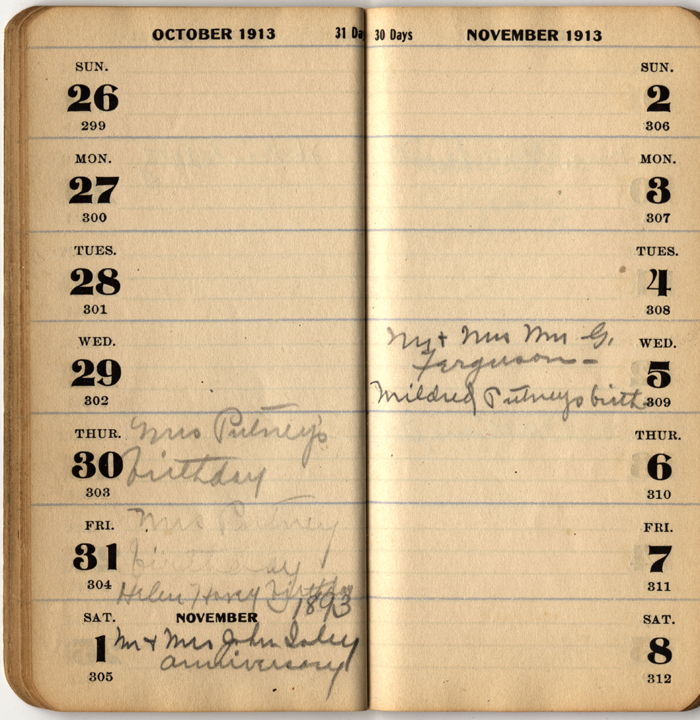 OCTOBER 1913
31 Da
SUN.
26
299
MON.
27
300
TUES.
28
301
WED.
29
302
THUR.
30
303
Mrs Putney's
birthday
FRI.
31
304
Mrs Putney
birthday
Helen Harvy birthday
1893
SAT.
1
305
NOVEMBER
Mr & Mrs John
anniversary
30 Days
NOVEMBER 1913
SUN.
2
306
MON.
3
307
TUES.
4
308
WED.
5
309
Mr & Mrs Wm G.
Ferguson -
Mildred Putneys birth
THUR.
6
310
FRI.
7
311
SAT.
8
312